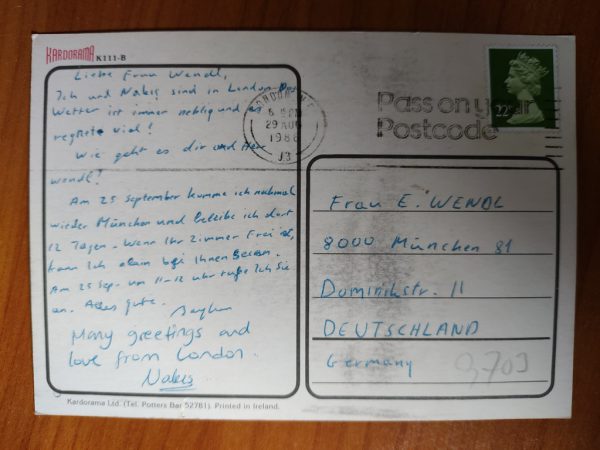 KARDORAMA K111-B
Liebe Frau Wendl,
Ich und Nakış sind in London. Das
Wetter ist immer neblig und es
regnete viel!
Wie geht es dir und Herr
Wendl?
Am 25 september komme ich nochmal
wieder München und bleibe ich dort
12 Tagen. Wenn Ihr Zimmer frei ist,
kann ich dann bei Ihnen
Am 25 Sep. um 11-12 uhr rufe Ich Sie
an. Alles gute.
Many greetings and
love from London.
Nakış
Kardorama Ltd. (Tel. Potters Bar 52781). Printed in Ireland.
LONDON
29 AUG
1986
Pass on your
Postcode
22P
Frau E. WENDL
8000 München 81
Dominikstr. 11
DEUTSCHLAND
Germany